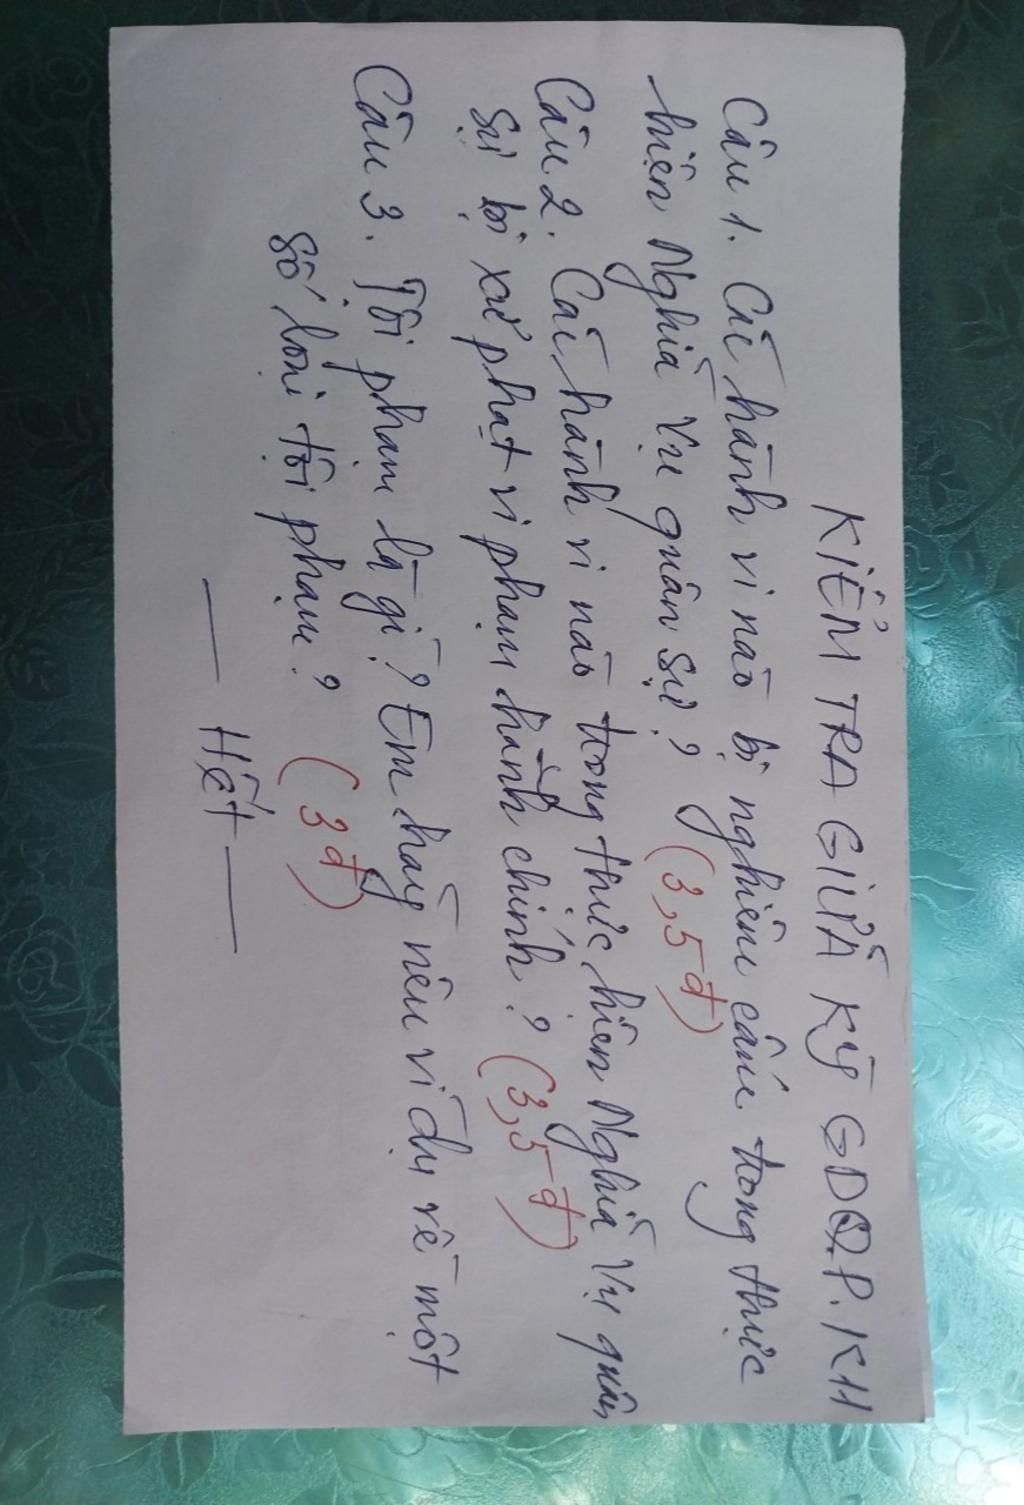 KIỂM TRA GIỮA KỲ GDQP. K11
Câu 1. Các hành vi nào bị nghiêm cấm trong thực
hiện Nghĩa vụ quân sự? (3,5đ)
Câu 2. Các hành vi nào trong thực hiện Nghĩa vụ quân
sự bị xử phạt vi phạm hành chính? (3,5đ)
Câu 3. Tội phạm là gì? Em hãy nêu ví dụ về một
số loại tội phạm? (3đ)
Hết